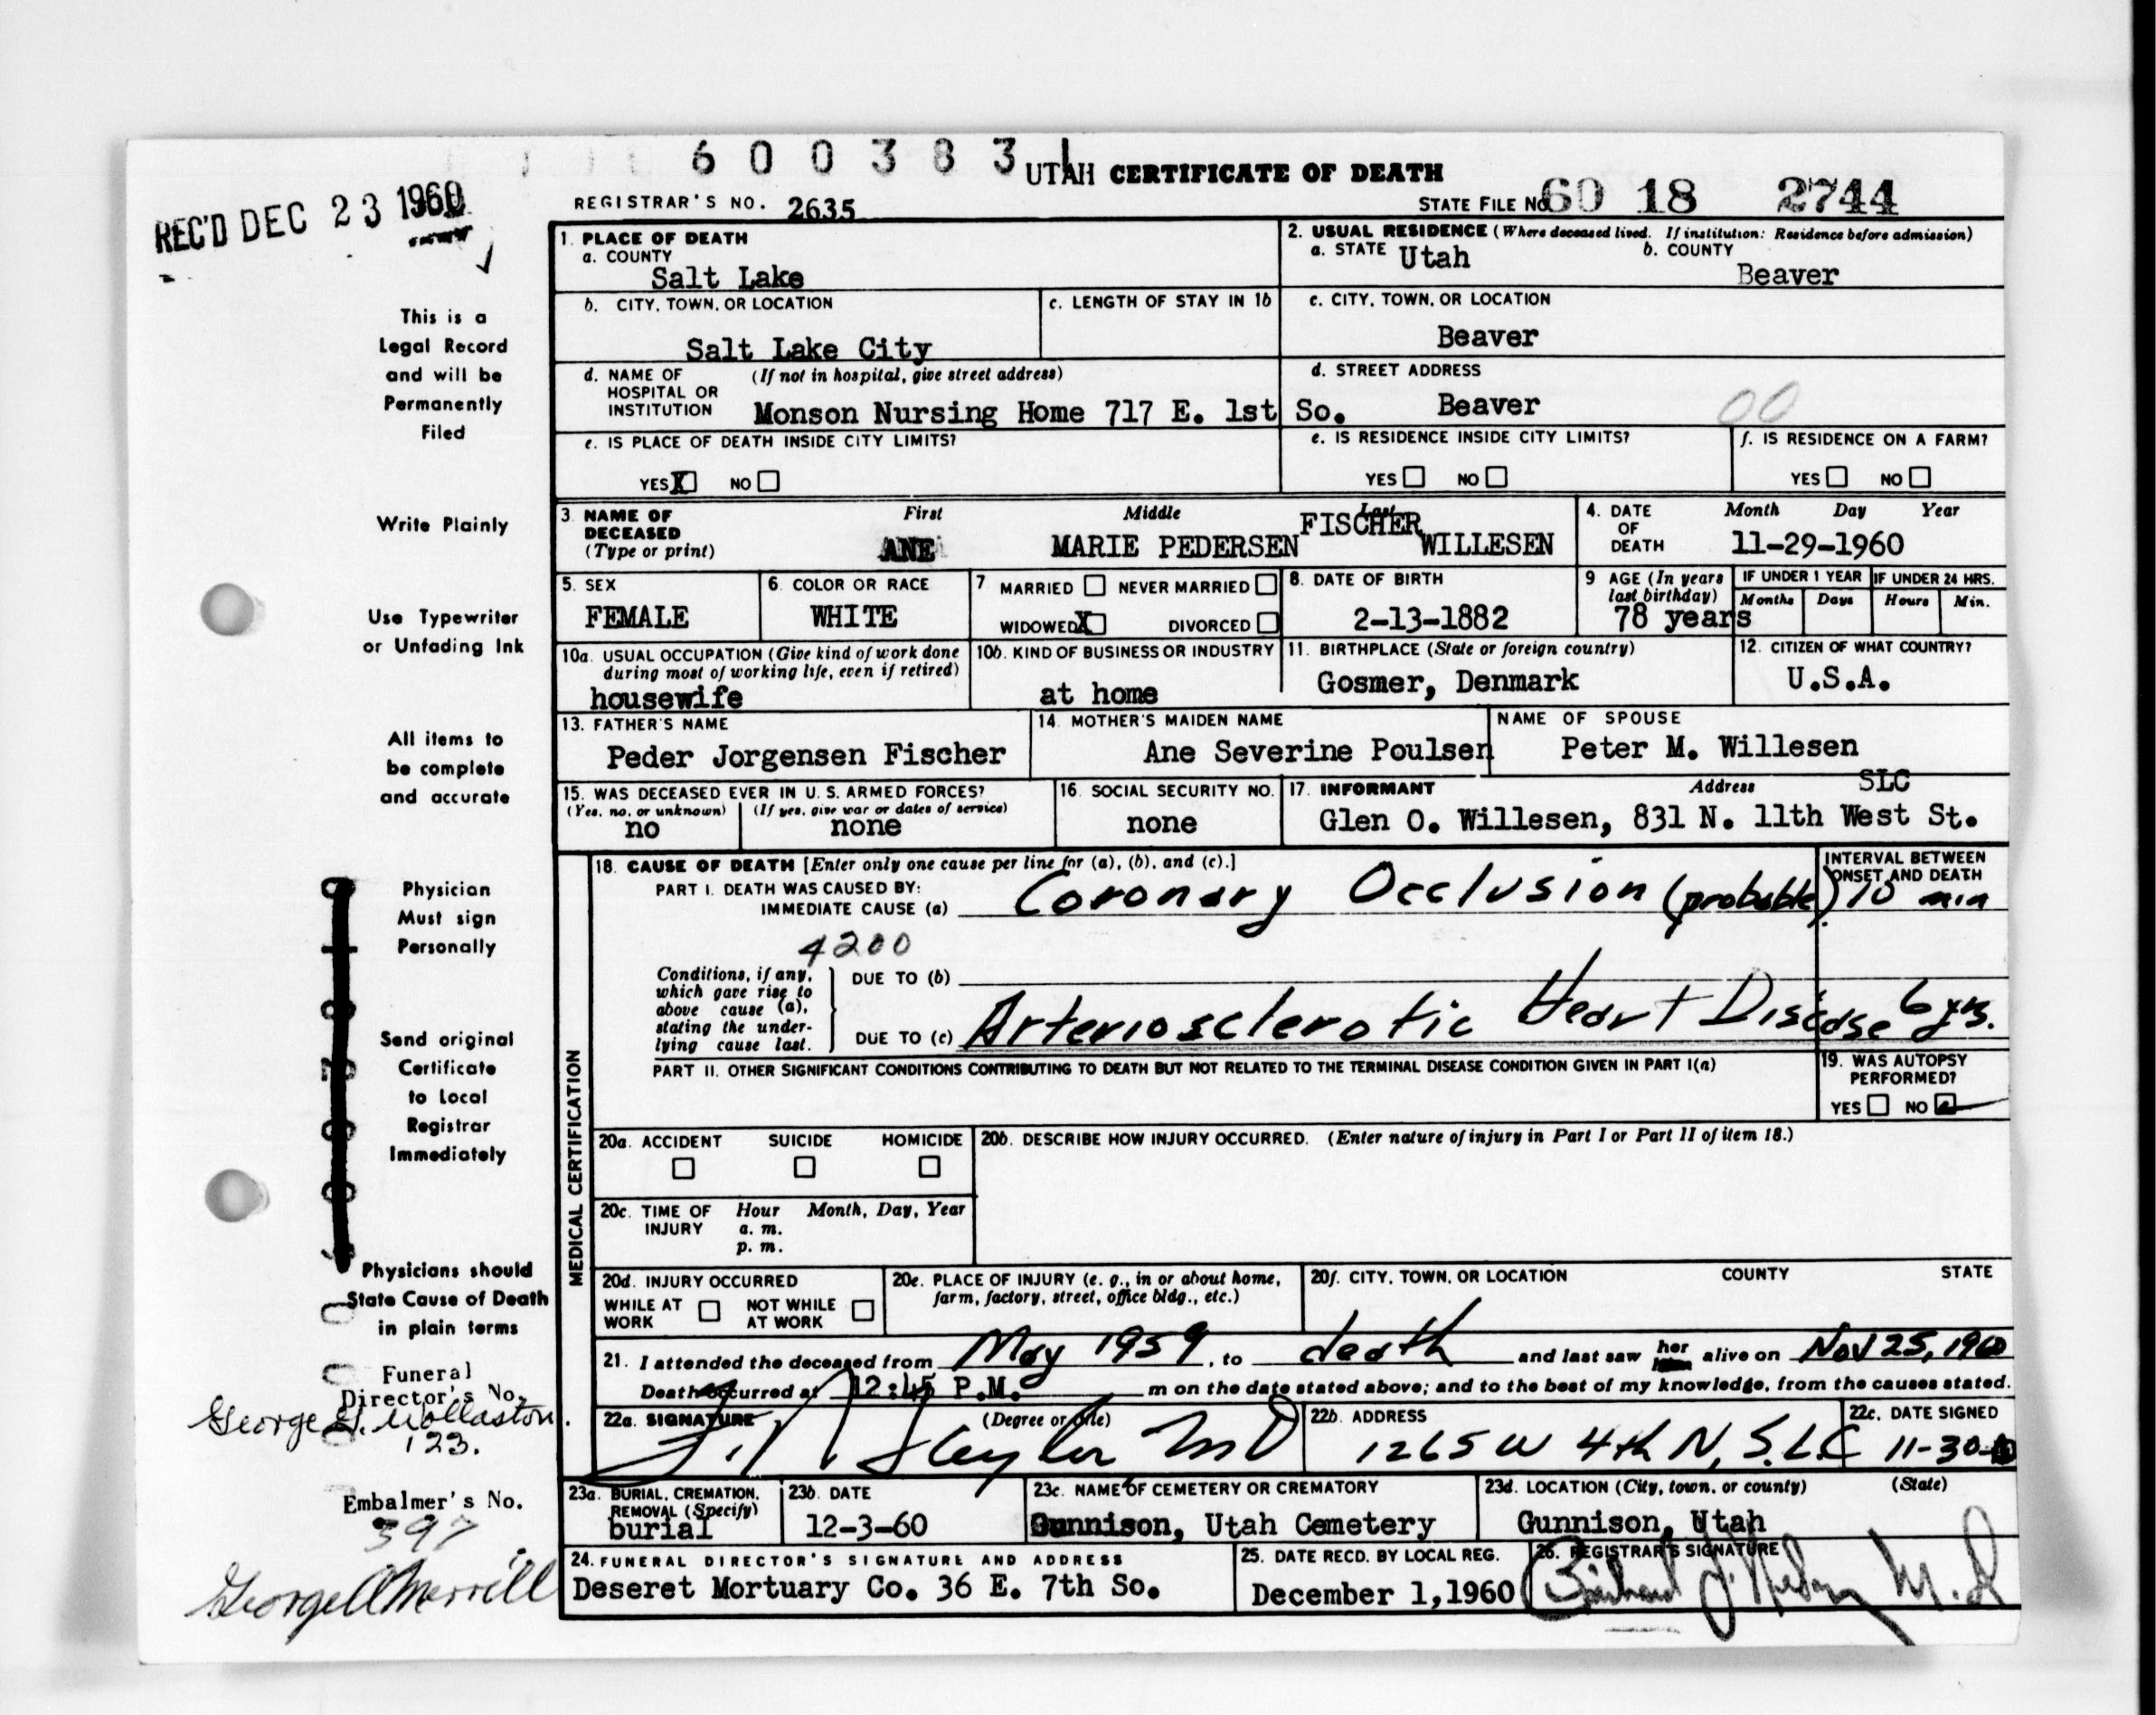 6 0 0 3 8 3 1
REC'D DEC 23 1960
UTAH CERTIFICATE OF DEATH
REGISTRAR'S NO. 2635
STATE FILE NO. 60 18 2744
1. PLACE OF DEATH
a. COUNTY
Salt Lake
2. USUAL RESIDENCE (Where deceased lived. If institution: Residence before admission)
a. STATE Utah
b. COUNTY
Beaver
b. CITY, TOWN, OR LOCATION
Salt Lake City
c. LENGTH OF STAY IN 1b
c. CITY, TOWN, OR LOCATION
Beaver
d. NAME OF HOSPITAL OR INSTITUTION (If not in hospital, give street address)
Monson Nursing Home 717 E. 1st So.
d. STREET ADDRESS
Beaver
00
e. IS PLACE OF DEATH INSIDE CITY LIMITS?
YES X NO
e. IS RESIDENCE INSIDE CITY LIMITS?
YES NO
f. IS RESIDENCE ON A FARM?
YES NO
3. NAME OF DECEASED
(Type or print)
First Middle Last
ANE MARIE PEDERSEN FISCHER WILLESEN
4. DATE OF DEATH
Month Day Year
11-29-1960
5. SEX
FEMALE
6. COLOR OR RACE
WHITE
7. MARRIED NEVER MARRIED
WIDOWED X DIVORCED
8. DATE OF BIRTH
2-13-1882
9. AGE (In years last birthday)
78 years
IF UNDER 1 YEAR
Months Days
IF UNDER 24 HRS.
Hours Min.
10a. USUAL OCCUPATION (Give kind of work done during most of working life, even if retired)
housewife
10b. KIND OF BUSINESS OR INDUSTRY
at home
11. BIRTHPLACE (State or foreign country)
Gosmer, Denmark
12. CITIZEN OF WHAT COUNTRY?
U.S.A.
13. FATHER'S NAME
Peder Jorgensen Fischer
14. MOTHER'S MAIDEN NAME
Ane Severine Poulsen
NAME OF SPOUSE
Peter M. Willesen
15. WAS DECEASED EVER IN U. S. ARMED FORCES?
(Yes, no, or unknown) (If yes, give war or dates of service)
no none
16. SOCIAL SECURITY NO.
none
17. INFORMANT Address SLC
Glen O. Willesen, 831 N. 11th West St.
MEDICAL CERTIFICATION
18. CAUSE OF DEATH [Enter only one cause per line for (a), (b), and (c).]
PART I. DEATH WAS CAUSED BY:
IMMEDIATE CAUSE (a) Coronary Occlusion (probable)
INTERVAL BETWEEN ONSET AND DEATH
10 min
4200
Conditions, if any, which gave rise to above cause (a), stating the underlying cause last.
DUE TO (b)
DUE TO (c) Arteriosclerotic Heart Disease 6 yrs.
PART II. OTHER SIGNIFICANT CONDITIONS CONTRIBUTING TO DEATH BUT NOT RELATED TO THE TERMINAL DISEASE CONDITION GIVEN IN PART I(a)
19. WAS AUTOPSY PERFORMED?
YES NO
20a. ACCIDENT SUICIDE HOMICIDE
20b. DESCRIBE HOW INJURY OCCURRED. (Enter nature of injury in Part I or Part II of item 18.)
20c. TIME OF INJURY
Hour Month, Day, Year
a. m.
p. m.
20d. INJURY OCCURRED
WHILE AT WORK NOT WHILE AT WORK
20e. PLACE OF INJURY (e. g., in or about home, farm, factory, street, office bldg., etc.)
20f. CITY, TOWN, OR LOCATION COUNTY STATE
21. I attended the deceased from May 1959, to death and last saw her alive on Nov 25, 1960
Death occurred at 12:45 P.M. m on the date stated above; and to the best of my knowledge, from the causes stated.
22a. SIGNATURE (Degree or title)
MD
22b. ADDRESS
1265 W 4th N, S.L.C
22c. DATE SIGNED
11-30-
23a. BURIAL, CREMATION, REMOVAL (Specify)
burial
23b. DATE
12-3-60
23c. NAME OF CEMETERY OR CREMATORY
Gunnison, Utah Cemetery
23d. LOCATION (City, town, or county) (State)
Gunnison, Utah
24. FUNERAL DIRECTOR'S SIGNATURE AND ADDRESS
Deseret Mortuary Co. 36 E. 7th So.
25. DATE RECD. BY LOCAL REG.
December 1,1960
26. REGISTRAR'S SIGNATURE
M.D
This is a
Legal Record
and will be
Permanently
Filed
Write Plainly
Use Typewriter
or Unfading Ink
All items to
be complete
and accurate
Physician
Must sign
Personally
Send original
Certificate
to Local
Registrar
Immediately
Physicians should
State Cause of Death
in plain terms
Funeral
Director's No.
George H. Wollaston.
123.
Embalmer's No.
397
George A Merrill